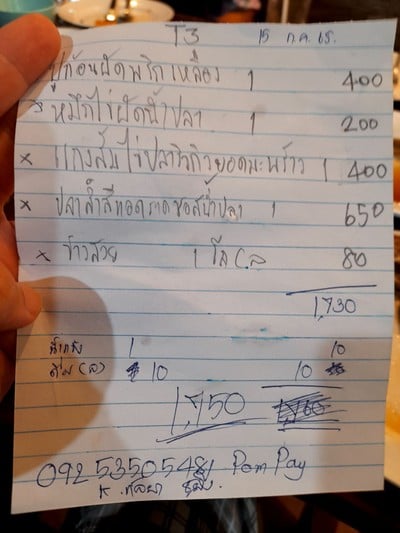 T3 15 ก.ค. 65.
ปูก้อนผัดพริกเหลือง 1 400
หมึกไข่ผัดน้ำปลา 1 200
x แกงส้มไข่ปลาริวกิวยอดมะพร้าว 1 400
x ปลาสำลีทอดราดซอสน้ำปลา 1 650
x ข้าวสวย 1 โถ 80
1,730
น้ำแข็ง 1 10
10 10
1,750
092 5350548 Pom Pay
K.